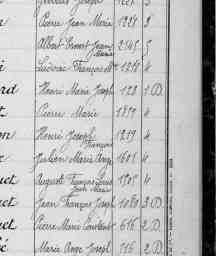 Pierre Jean Marie 1224 3
Albert Ernest Jean Marie 2145 5
Ludovic François Mie 1214 4
rd Henri Marie Joseph 128 1 D.
t Pierre Marie 1844 4
on Henri Joseph François 1219 4
n Julien Marie Ange 1601 4
uet Auguste François Louis Jean Marie 1905 4
uet Jean François Joseph 1080 3 D.
uet Pierre Marie Constant 616 2 D.
é Marie Ange Joseph 716 2 D.